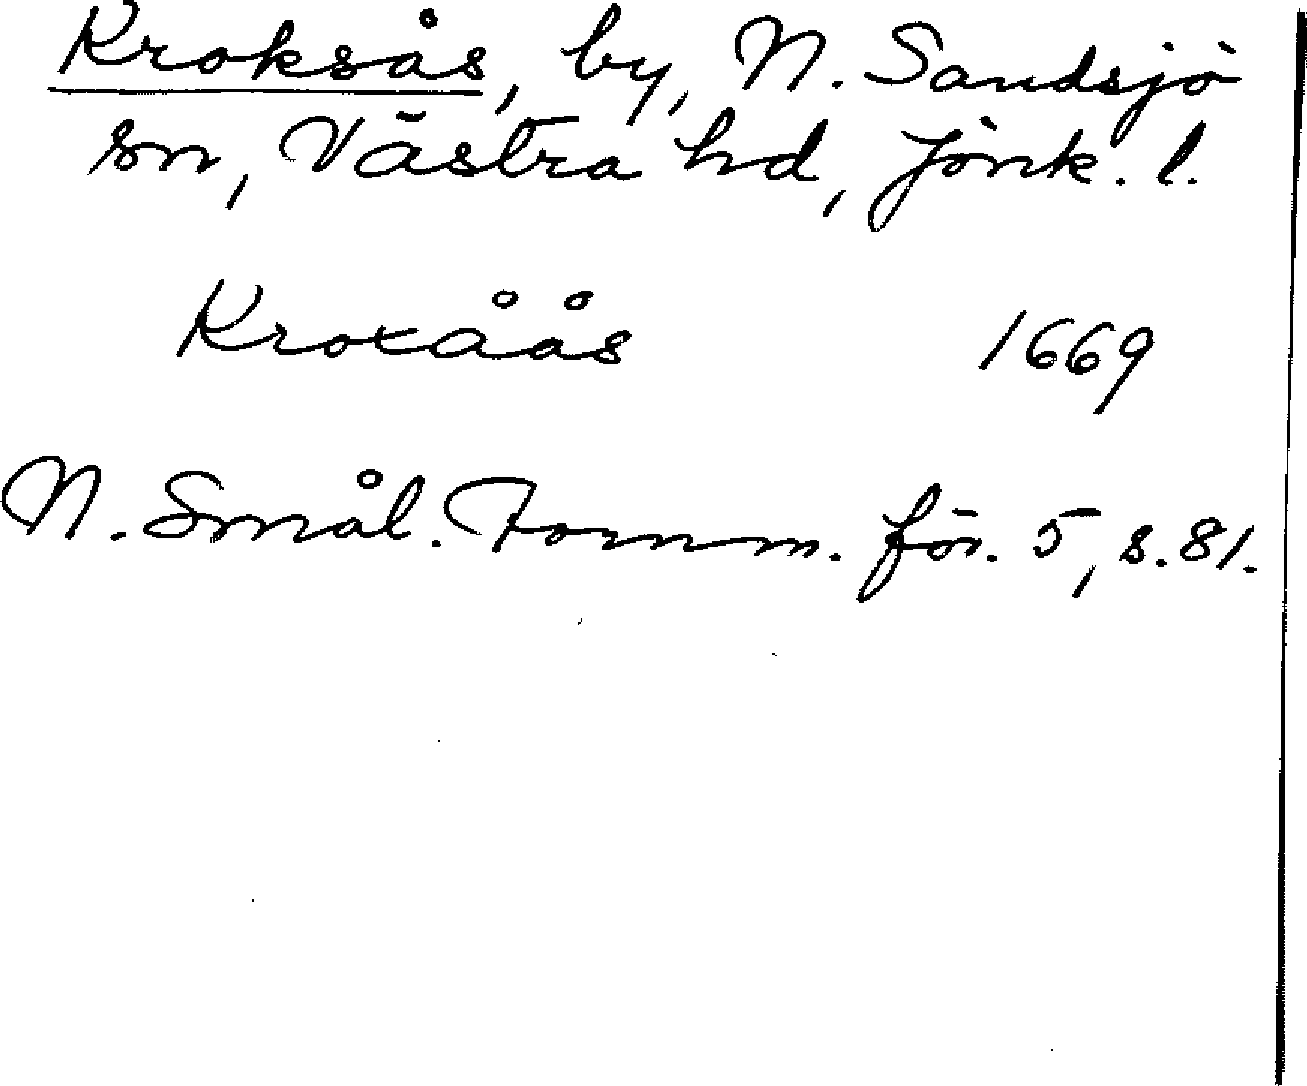 Kroksås, by, N. Sandsjö
sn, Västra hd, Jönk. l.
Kroxåås 1669
N. Smål. Fornm. för. 5, s. 81.